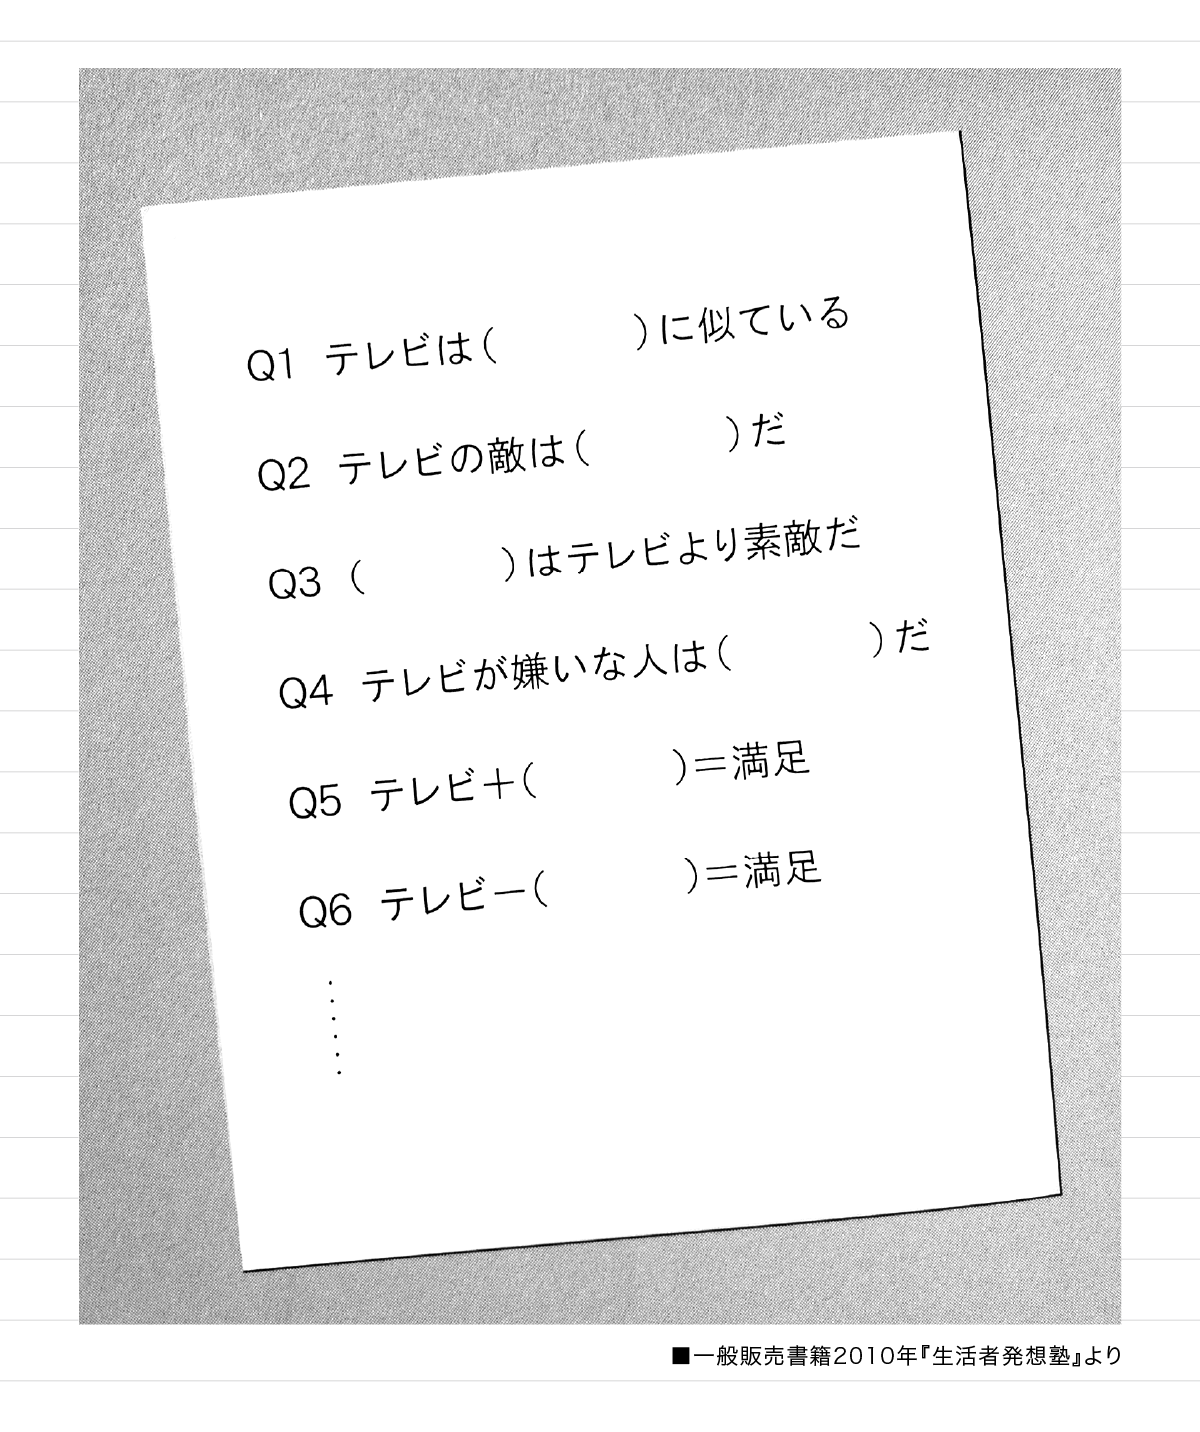 Q1 テレビは(　　　)に似ている
Q2 テレビの敵は(　　　)だ
Q3 (　　　)はテレビより素敵だ
Q4 テレビが嫌いな人は(　　　)だ
Q5 テレビ+(　　　)=満足
Q6 テレビー(　　　)=満足
⋯⋯
■一般販売書籍2010年『生活者発想塾』より